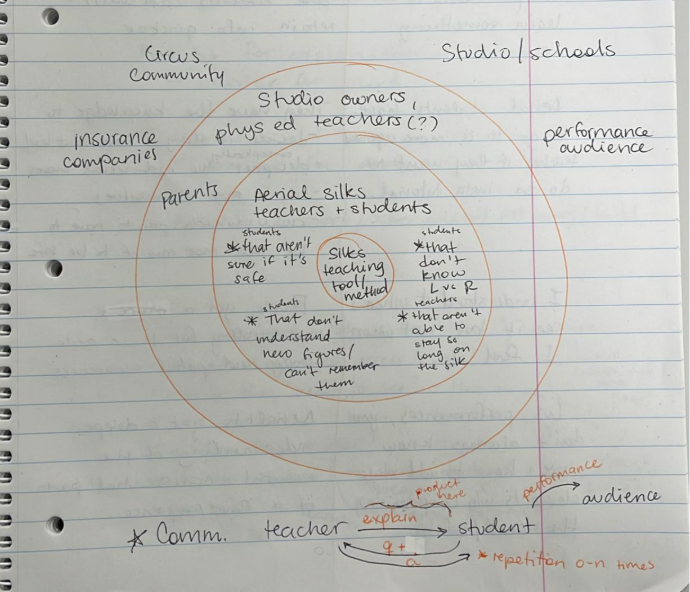 Circus
community
Studio/schools
Studio owners,
phys ed teachers(?)
insurance
companies
performance
audience
parents
Aerial silks
teachers + students
students
* that aren't
sure if it's
safe
silks
teaching
tool/
method
students
* that
don't
know
L vs R
students
* That don't
understand
new figures/
can't remember
them
teachers
* that aren't
able to
stay so
long on
the silk
product
here
performance
audience
* Comm. teacher explain student
q +
a
* repetition o-n times